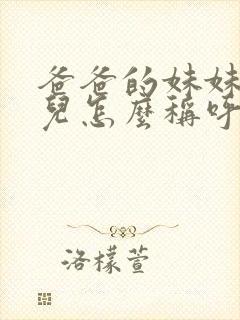 爸爸的妹妹
兒怎麼稱呼
洛檬萱